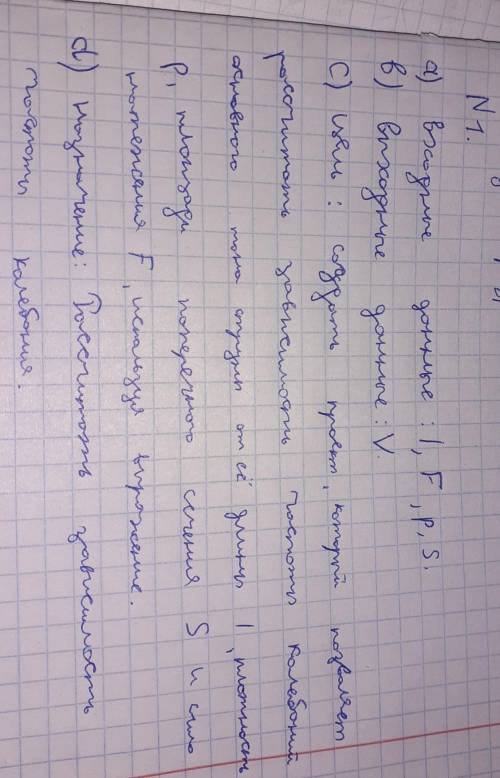 N1.
а) входные данные: l, F, p, S.
в) выходные данные: V.
с) Цель: создать проект, который позволяет
рассчитать зависимость частоты колебаний
основного тона струны от её длины l, плотность
p, площади поперечного сечения S и сила
натежения F, используя выражение.
d) Назначение: Рассчитать зависимость
частоты колебания.